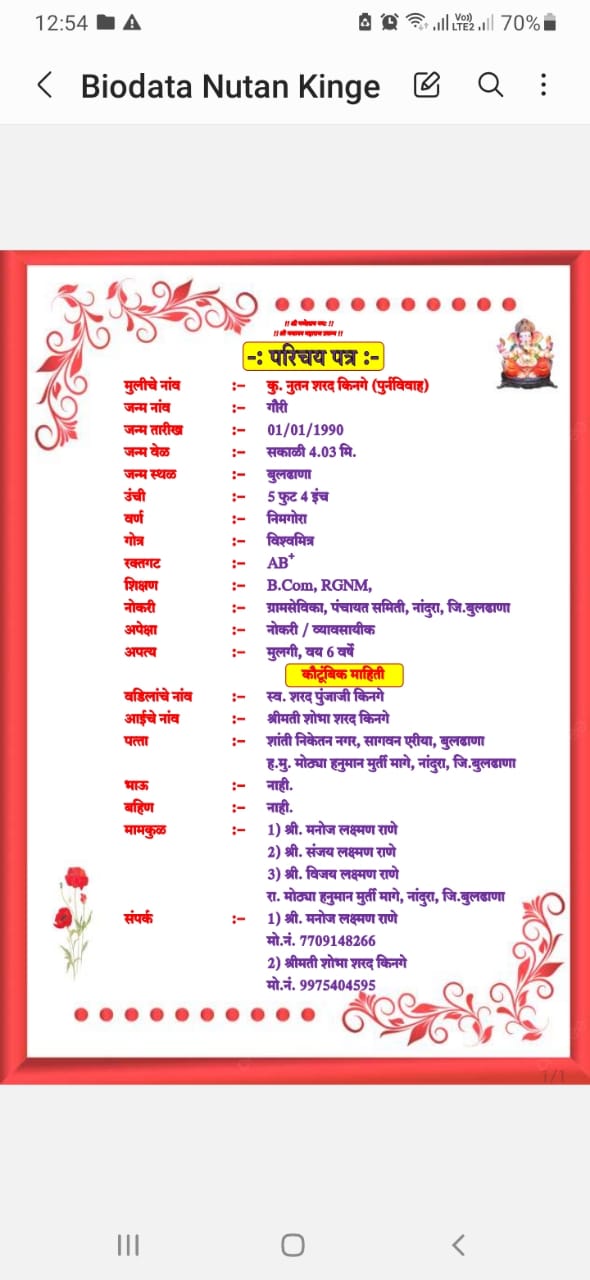 12:54
Vo)) LTE2 70%
Biodata Nutan Kinge
!! श्री गणेशाय नमः !!
-: परिचय पत्र :-
मुलीचे नांव :- कु. नुतन शरद किनगे (पुर्नविवाह)
जन्म नांव :- गौरी
जन्म तारीख :- 01/01/1990
जन्म वेळ :- सकाळी 4.03 मि.
जन्म स्थळ :- बुलढाणा
उंची :- 5 फुट 4 इंच
वर्ण :- निमगोरा
गोत्र :- विश्वमित्र
रक्तगट :- AB+
शिक्षण :- B.Com, RGNM,
नोकरी :- ग्रामसेविका, पंचायत समिती, नांदुरा, जि.बुलढाणा
अपेक्षा :- नोकरी / व्यावसायीक
अपत्य :- मुलगी, वय 6 वर्षे
कौटूंबिक माहिती
वडिलांचे नांव :- स्व. शरद पुंजाजी किनगे
आईचे नांव :- श्रीमती शोभा शरद किनगे
पत्ता :- शांती निकेतन नगर, सागवन एरीया, बुलढाणा
ह.मु. मोठ्या हनुमान मुर्ती मागे, नांदुरा, जि.बुलढाणा
भाऊ :- नाही.
बहिण :- नाही.
मामकुळ :- 1) श्री. मनोज लक्ष्मण राणे
2) श्री. संजय लक्ष्मण राणे
3) श्री. विजय लक्ष्मण राणे
रा. मोठ्या हनुमान मुर्ती मागे, नांदुरा, जि.बुलढाणा
संपर्क :- 1) श्री. मनोज लक्ष्मण राणे
मो.नं. 7709148266
2) श्रीमती शोभा शरद किनगे
मो.नं. 9975404595
1/1